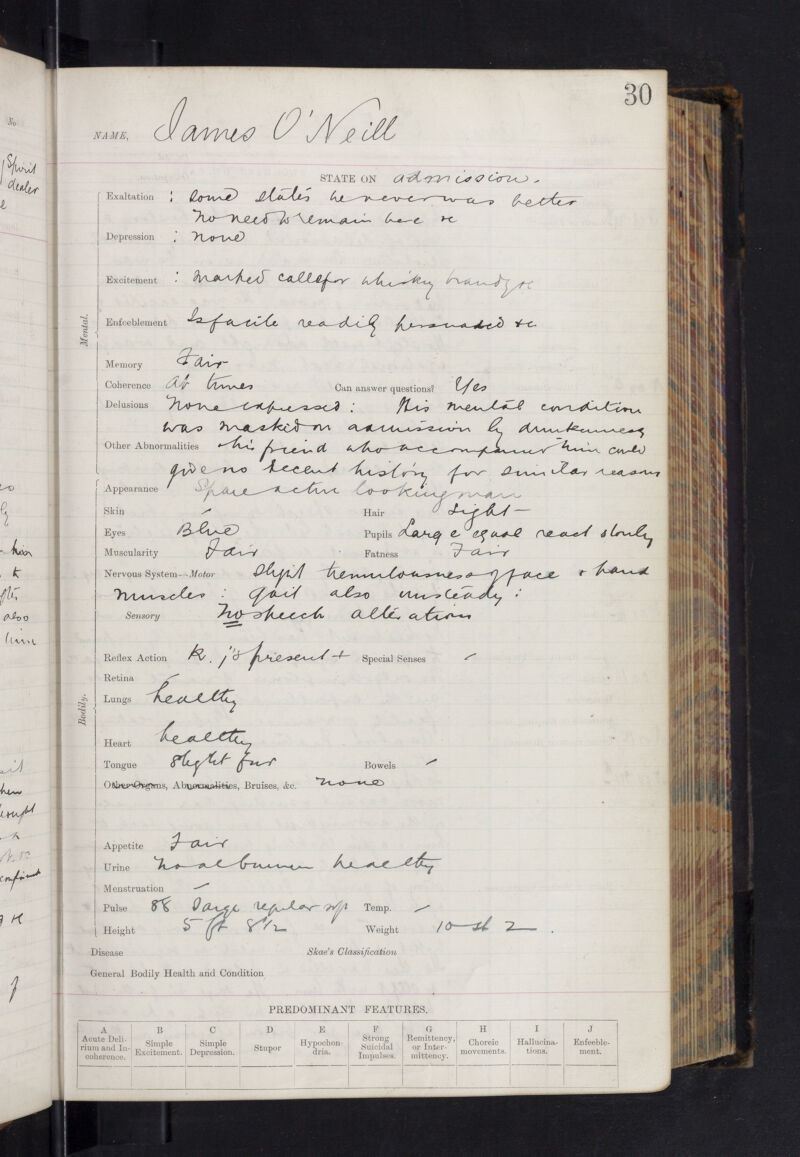 No
Spirit
dealer
30
NAME, James O'Neill
STATE ON admission.
Mental.
Exaltation : some states he never was better
no need to remain here &c
Depression : none
Excitement : marked calls for whisky brandy &c
Enfeeblement Is facile readily persuaded &c
Memory Fair
Coherence at times Can answer questions? Yes
Delusions None expressed: His mental condition
was masked on admission by drunkenness
Other Abnormalities his friend who accompanied him could
give no decent history for similar reasons
Bodily.
Appearance Spare active looking man
Skin Hair Light —
Eyes Blue Pupils Large equal react slowly
Muscularity Fair Fatness Fair
Nervous System—Motor slight tremulousness of face & hand
muscles : gait also unsteady :
Sensory No speech alteration
Reflex Action K. j's present + Special Senses
Retina
Lungs healthy
Heart healthy
Tongue slight fur Bowels
Other Organs, Abnormalities, Bruises, &c. none
Appetite Fair
Urine no albumen healthy
Menstruation
Pulse 88 large regular Temp.
Height 5 ft 8 1/2 Weight 10 st 2 .
Disease Skae's Classification
General Bodily Health and Condition
PREDOMINANT FEATURES.
A B C D E F G H I J
Acute Delirium and Incoherence. Simple Excitement. Simple Depression. Stupor Hypochondria. Strong Suicidal Impulses. Remittency, or Intermittency. Choreic movements. Hallucinations. Enfeeblement.